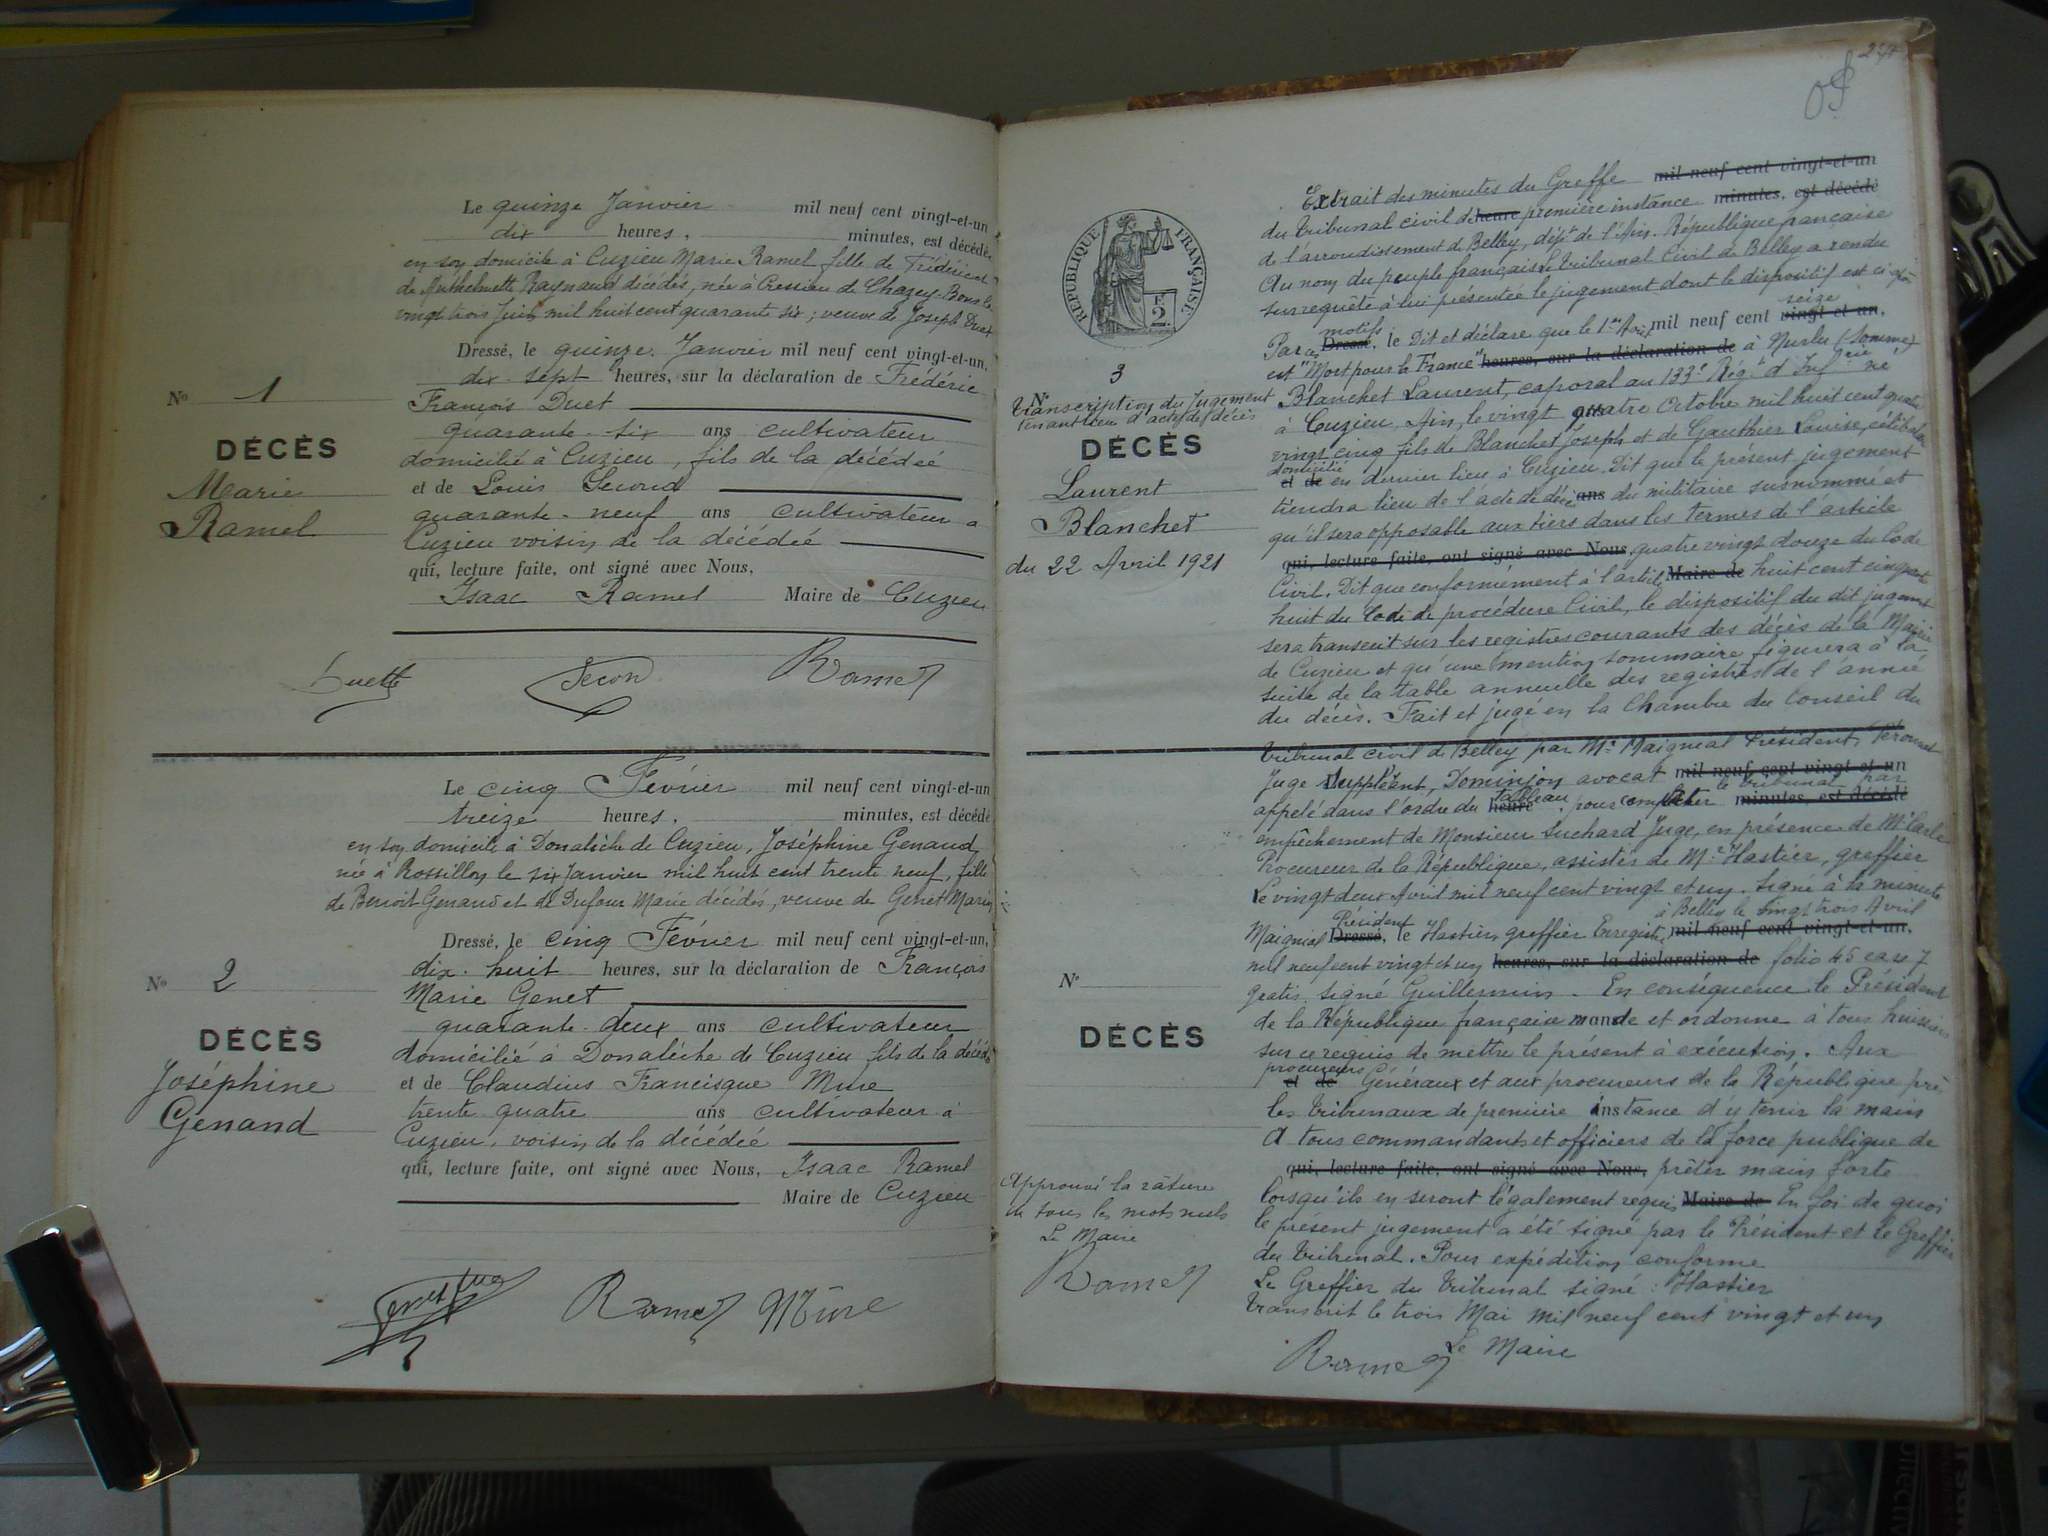 Le quinze Janvier mil neuf cent vingt-et-un
dix heures, minutes, est décédée
en son domicile à Cuzieu Marie Ramel fille de Frédérient
de Anthelmette Raynaud décédés, née à Cressieu de Chazey-Bons le
vingt trois Juin mil huit cent quarante six ; veuve de Joseph Duet
Dressé, le quinze Janvier mil neuf cent vingt-et-un,
dix-sept heures, sur la déclaration de Frédéric
François Duet
quarante-six ans cultivateur
domicilié à Cuzieu, fils de la décédée
et de Louis Second
quarante-neuf ans cultivateur à
Cuzieu voisin de la décédée
qui, lecture faite, ont signé avec Nous,
Isaac Ramel Maire de Cuzieu
No 1
DÉCÈS
Marie
Ramel
Duette Secon Ramel
Le cinq Février mil neuf cent vingt-et-un
treize heures, minutes, est décédé
en son domicile à Donalèche de Cuzieu, Joséphine Genand
née à Rossillon le six Janvier mil huit cent trente neuf, fille
de Benoit Genand et de Dufour Marie décédés, veuve de Genet Marin
Dressé, le cinq Février mil neuf cent vingt-et-un,
dix-huit heures, sur la déclaration de François
Marie Genet
quarante-deux ans cultivateur
domicilié à Donalèche de Cuzieu fils de la décédée
et de Claudius Francisque Mure
trente quatre ans cultivateur à
Cuzieu, voisin de la décédée
qui, lecture faite, ont signé avec Nous, Isaac Ramel
Maire de Cuzieu
No 2
DÉCÈS
Joséphine
Genand
Ramel Mure
RÉPUBLIQUE FRANÇAISE
2
3
No
Transcription du Jugement
tenant lieu d'acte de décès
DÉCÈS
Laurent
Blanchet
du 22 Avril 1921
Extrait des minutes du Greffe mil neuf cent vingt-et-un
du Tribunal civil de heure première instance minutes, est décédé
de l'arrondissement de Belley, dépt de l'Ain. République française
Au nom du peuple français le Tribunal Civil de Belley a rendu
sur requête à lui présentée le jugement dont le dispositif est ci après
Par ces motifs Dressé, le Dit et déclare que le 1er Avril mil neuf cent seize vingt et un,
est "Mort pour la France" heures, sur la déclaration de à Nurlu (Somme)
Blanchet Laurent, caporal au 133e Régt d'Infrie né
à Cuzieu, Ain, le vingt quatre Octobre mil huit cent quatre
vingt cinq fils de Blanchet Joseph et de Gauthier Louise, célibataire
domicilié et de en dernier lieu à Cuzieu. Dit que le présent jugement
tiendra lieu de l'acte de décès ans du militaire susnommé et
qu'il sera opposable aux tiers dans les termes de l'article
qui, lecture faite, ont signé avec Nous, quatre vingt douze du Code
Civil. Dit que conformément à l'article Maire de huit cent cinquante
huit du Code de procédure Civil, le dispositif du dit jugement
sera transcrit sur les registres courants des décès de la Mairie
de Cuzieu et qu'une mention sommaire figurera à la
suite de la table annuelle des registres de l'année
du décès. Fait et jugé en la Chambre du Conseil du
Tribunal civil de Belley par Mr Maignial Président,
Juge Suppléant, Dominjon avocat mil neuf cent vingt et un
appelé dans l'ordre du tableau heure pour compléter le tribunal par minutes, est décédé
empêchement de Monsieur Suchard Juge, en présence de Mr Carle
Procureur de la République, assistés de Mr Hastier, greffier
Le vingt deux Avril mil neuf cent vingt et un. Signé à la minute
Maignial Président Dressé, le Hastier, greffier Enregistré à Belley le vingt trois Avril mil neuf cent vingt-et-un,
mil neuf cent vingt et un heures, sur la déclaration de folio 45 case 7
gratis. Signé Guillermin. En conséquence le Président
de la République française mande et ordonne à tous huissiers
sur ce requis de mettre le présent à exécution. Aux
procureurs et de Généraux et aux procureurs de la République près
les tribunaux de première instance d'y tenir la main
A tous commandants et officiers de la force publique de
qui, lecture faite, ont signé avec Nous, prêter main forte
lorsqu'ils en seront légalement requis Maire de En foi de quoi
le présent jugement a été signé par le Président et le Greffier
du tribunal. Pour expédition conforme
Le Greffier du tribunal signé : Hastier
Transcrit le trois Mai mil neuf cent vingt et un
Le Maire
Ramel
No
DÉCÈS
Approuvé la râture
de tous les mots nuls
Le Maire
Ramel